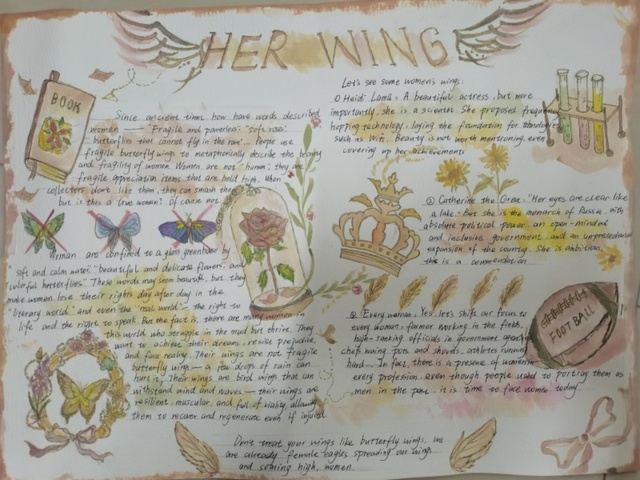 HER WING
BOOK
Since ancient time, how have words described
women —— "Fragile and powerless" "soft rosa".
butterflies that cannot fly in the rain". People use
fragile butterfly wings to metaphorically describe the beauty
and fragility of women. Women are not "human", they are
fragile appreciation items that are held high. When
collectors don't like them, they can smash them
but is this a love women? Of cause not.
Woman are confined to a glass greenhouse by
"soft and calm water" "beautiful and delicate flowers" and
"colorful butterflies". These words may seem beautiful, but they
make women lose their rights day after day in the
"literary world" and even the "real world" — the right to
life and the right to speak. But the fact is, there are many women in
this world who struggle in the mud but thrive. They
want to achieve their dreams, resise prejudice
and face reality. Their wings are not fragile
butterfly wing — a few drops of rain can
hurt it. Their wings are bird wings that can
withstand wind and waves — their wings are
resilient, muscular, and full of vitality, allowing
them to recover and regenerate even if injured.
Let's see some women's wings:
① Heidi Lama: A beautiful actress, but more
importantly, she is a scientis. She proposed frequency
hopping technology, laying the foundation for technologies
such as Wifi. Beauty is not worth mentioning, even
covering up her achievements.
② Catherine the Great: "Her eyes are clear like
a lake. but she is the monarch of Russia, with
absolute political power, an open-minded
and inclusive government, and an unprecedented
expansion of the country. She is ambitious,
this is a commendation.
③ Every woman: Yes, let's shifts our focus to
every women, farmer working in the fields,
high-ranking officials in government,
chefs waving pots and shovels, athletes running
hard... In fact, there is a presence of women in
every profession, even though people used to portray them as
men in the past, it is time to face women today.
FOOTBALL
Don't treat your wings like butterfly wings, we
are already female eagles spreading our wings
and soaring high, women.